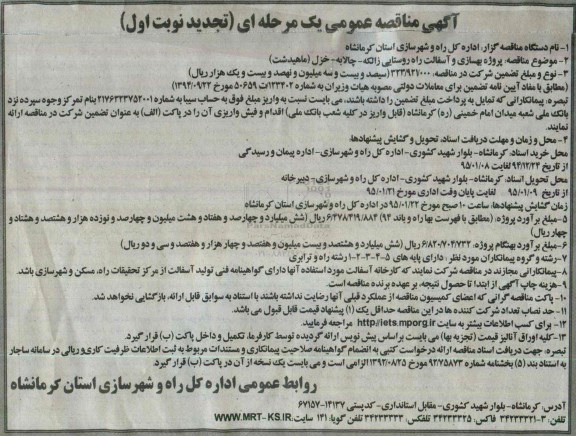 آگهی مناقصه عمومی یک مرحله ای (تجدید نوبت اول)
۱- نام دستگاه مناقصه گزار: اداره کل راه و شهرسازی استان کرمانشاه
۲- موضوع مناقصه: پروژه بهسازی و آسفالت راه روستایی زالکه- چالابه- خزل (ماهیدشت)
۳- نوع و مبلغ تضمین شرکت در مناقصه: ۳۲۳/۹۲۱۰۰۰ (سیصد و بیست و سه میلیون و نهصد و بیست و یک هزار ریال)
(مطابق با مفاد آیین نامه تضمین برای معاملات دولتی مصوبه هیات وزیران به شماره ۱۲۳۴۰۲ات ۵۰۶۵۹ مورخ ۱۳۹۴/۰۹/۲۲)
تبصره: پیمانکارانی که تمایل به پرداخت مبلغ تضمین را داشته باشند، می بایست نسبت به واریز مبلغ فوق به حساب سیبا به شماره ۲۱۷۶۳۳۳۷۵۲۰۰۱ بنام تمرکز وجوه سپرده نزد
بانک ملی شعبه میدان امام خمینی (ره) کرمانشاه (قابل واریز در کلیه شعب بانک ملی) اقدام و فیش واریزی آن را در پاکت (الف) به عنوان تضمین شرکت در مناقصه ارائه
نمایند.
۴- محل و زمان و مهلت دریافت اسناد، تحویل و گشایش پیشنهادها:
محل خرید اسناد: کرمانشاه- بلوار شهید کشوری- اداره کل راه و شهرسازی- اداره پیمان و رسیدگی
از تاریخ ۹۴/۱۲/۲۴ لغایت ۹۵/۰۱/۰۸
محل تحویل اسناد: کرمانشاه- بلوار شهید کشوری- اداره کل راه و شهرسازی- دبیرخانه
از تاریخ ۹۵/۰۱/۰۹ لغایت پایان وقت اداری مورخ ۹۵/۰۱/۲۱
زمان گشایش پیشنهادها: ساعت ۱۰ صبح مورخ ۹۵/۰۱/۲۲ در اداره کل راه و شهرسازی استان کرمانشاه
۵- مبلغ برآورد پروژه: (مطابق با فهرست بها راه و باند ۹۴) ۶/۴۷۸۴۱۹/۸۸۴ ریال (شش میلیارد و چهارصد و هفتاد و هشت میلیون و چهارصد و نوزده هزار و هشتصد و هشتاد و
چهار ریال)
۶- مبلغ برآورد بهنگام پروژه: ۶/۸۲۰۷۰۴/۷۳۲ ریال (شش میلیارد و هشتصد و بیست میلیون و هفتصد و چهار هزار و هفتصد و سی و دو ریال)
۷- رشته و گروه پیمانکاران مورد نظر: دارای پایه های ۵-۴-۳-۲-۱ رشته راه و ترابری
۸- پیمانکارانی مجازند در مناقصه شرکت نمایند که کارخانه آسفالت مورد استفاده آنها دارای گواهینامه فنی تولید آسفالت از مرکز تحقیقات راه، مسکن و شهرسازی باشد.
۹- هزینه چاپ آگهی از ابتدا تا حصول نتیجه، بر عهده برنده مناقصه است.
۱۰- پاکت مناقصه گرانی که اعضای کمیسیون مناقصه از عملکرد قبلی آنها رضایت نداشته باشند با استناد به سوابق قابل ارائه، بازگشایی نخواهد شد.
۱۱- حد نصاب تعداد شرکت کننده ها در این مناقصه حداقل یک (۱) پیشنهاد قیمت قابل قبول می باشد.
۱۲- برای کسب اطلاعات بیشتر به سایت http//iets.mporg.ir مراجعه فرمایید.
۱۳- کلیه اوراق آنالیز قیمت (تجزیه بها) می بایست براساس پیش نویس ارائه گردیده توسط کارفرما، تکمیل و داخل پاکت (ب) قرار گیرد.
تبصره: جهت دریافت اسناد مناقصه ارائه درخواست کتبی به انضمام گواهینامه صلاحیت پیمانکاری و مستندات مربوط به ثبت اطلاعات ظرفیت کاری و ریالی در سامانه ساجار
به استناد بند (۵) بخشنامه شماره ۹۲/۷۵۸۷۳ مورخ ۱۳۹۲/۰۸/۲۵ الزامی است و می بایست یک نسخه از آن در پاکت (ب) قرار گیرد
روابط عمومی اداره کل راه و شهرسازی استان کرمانشاه
آدرس: کرمانشاه- بلوار شهید کشوری- مقابل استانداری- کدپستی ۱۴۱۳۷-۶۷۱۵۷
تلفن: ۳-۳۴۲۳۳۳۲۱ فاکس: ۳۴۲۳۳۳۲۵ تلفکس: ۳۴۲۳۳۳۳۳ تلفن گویا: ۱۴۱ سایت: WWW.MRT-KS.IR